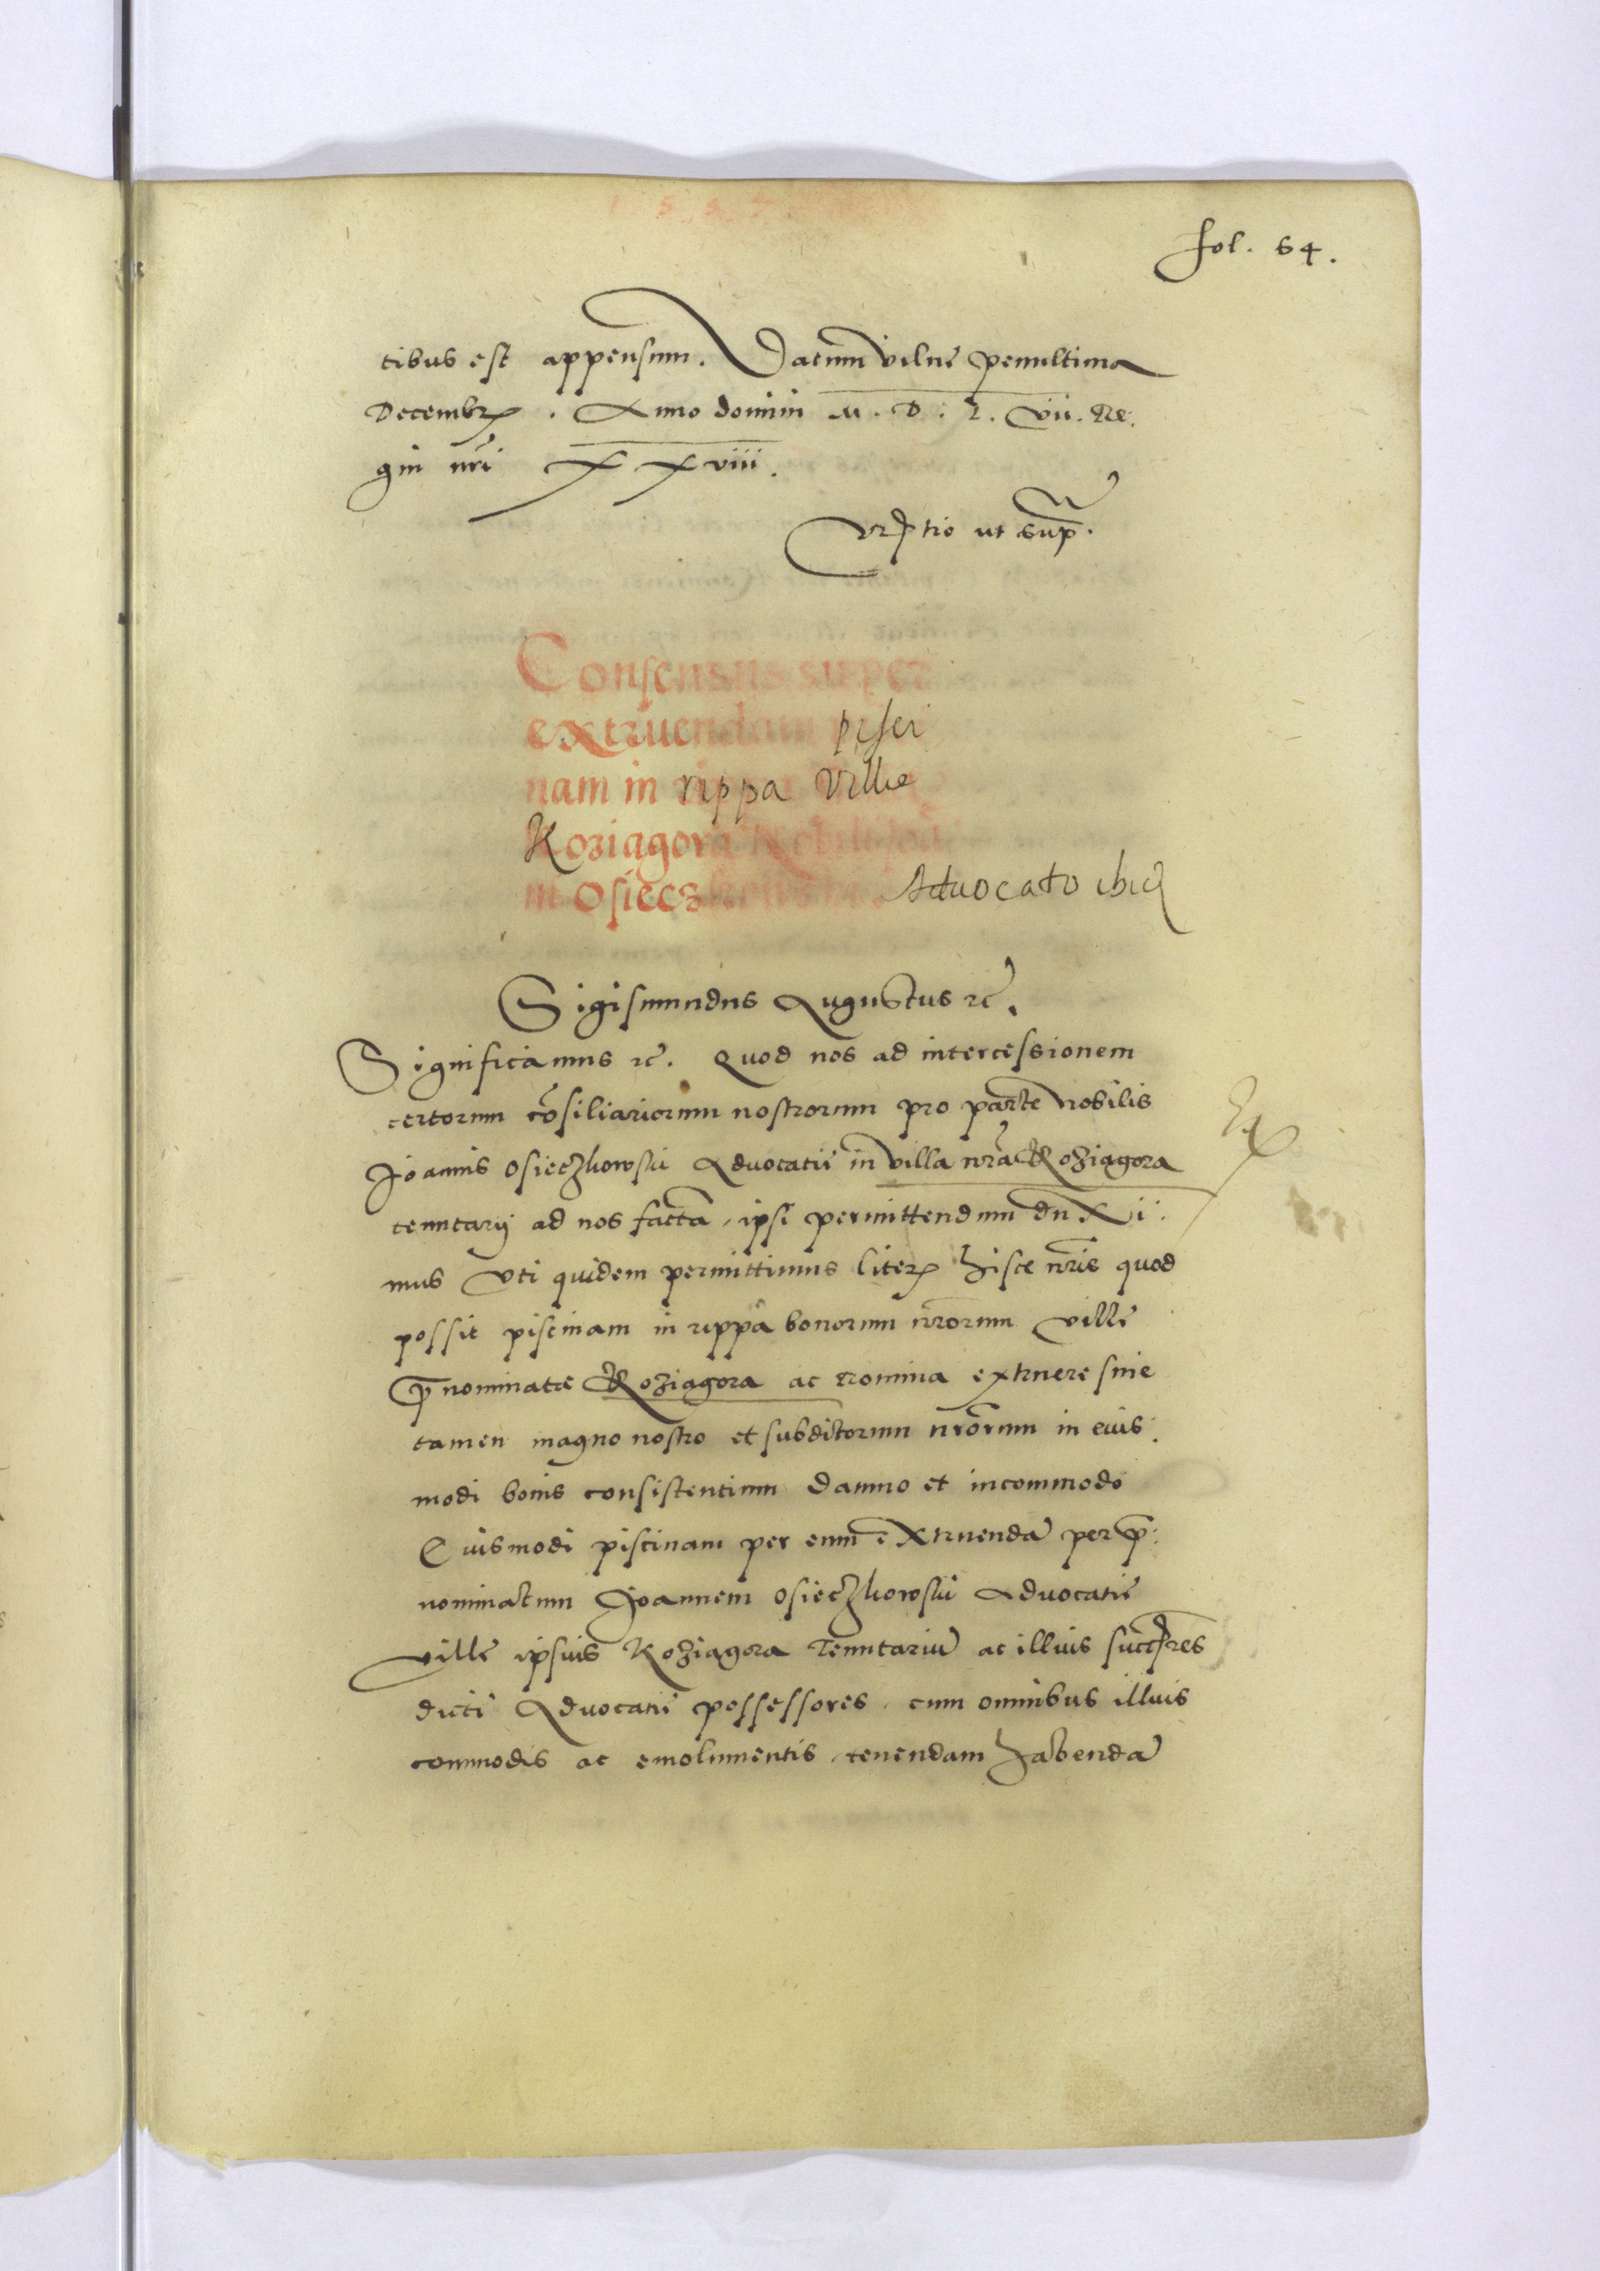 fol. 64.
tibus est appensum. Datum vilne penultima
Decembr. Anno domini M. D. L. vii. Re:
gni nri XXviii.
ut sup.
Consensus super
extruendam pisci
nam in rippa Villae
Koziagora Nobili Joan
ni Osiecz Advocato ibid
Sigismundus Augustus rc.
Significamus rc. Quod nos ad intercessionem
certorum cosiliariorum nostrorum pro parte nobilis
Joannis Osieczkowski Advocatie in villa nra Koziagora
tenutarij ad nos facta, ipsi permittendum duxi:
mus Vti quidem permittimus liter hisce nris quod
possit piscinam in rippa bonorum nrorum ville
pnominate Koziagora ac Romina extruere sine
tamen magno nostro et subditorum nrorum in eius:
modi bonis consistentium damno et incommodo
Eiusmodi piscinam per eum extruenda per p:
nominatum Joannem Osieczkowski Advocatie
ville ipsius Koziagora Tenutariu ac illius succres
dicti Advocatie possessores cum omnibus illius
commodis ac emolumentis tenendam habenda